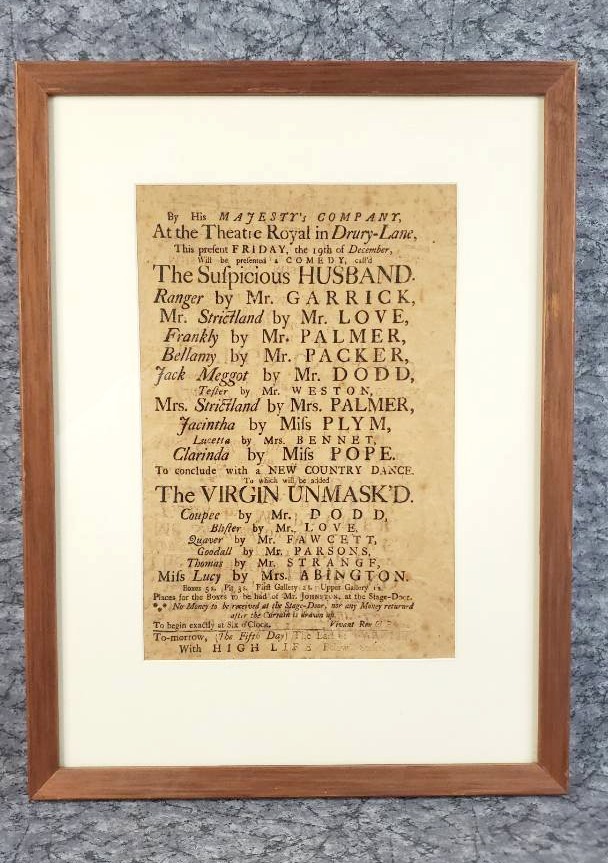 By His MAJESTY's COMPANY,
At the Theatre Royal in Drury-Lane,
This preſent FRIDAY, the 19th of December,
Will be preſented a COMEDY, call'd
The Suſpicious HUSBAND.
Ranger by Mr. GARRICK,
Mr. Strictland by Mr. LOVE,
Frankly by Mr. PALMER,
Bellamy by Mr. PACKER,
Jack Meggot by Mr. DODD,
Teſter by Mr. WESTON,
Mrs. Strictland by Mrs. PALMER,
Jacintha by Miſs PLYM,
Lucetta by Mrs. BENNET,
Clarinda by Miſs POPE.
To conclude with a NEW COUNTRY DANCE.
To which will be added
The VIRGIN UNMASK'D.
Coupee by Mr. DODD,
Bliſter by Mr. LOVE,
Quaver by Mr. FAWCETT,
Goodall by Mr. PARSONS,
Thomas by Mr. STRANGE,
Miſs Lucy by Mrs. ABINGTON.
Boxes 5s. Pit 3s. Firſt Gallery 2s. Upper Gallery 1s.
Places for the Boxes to be had of Mr. JOHNSTON, at the Stage-Door.
No Money to be received at the Stage-Door, nor any Money returned
after the Curtain is drawn up.
To begin exactly at Six o'Clock. Vivant Rex
To-morrow, (The Fifth Day) The
With HIGH LIFE